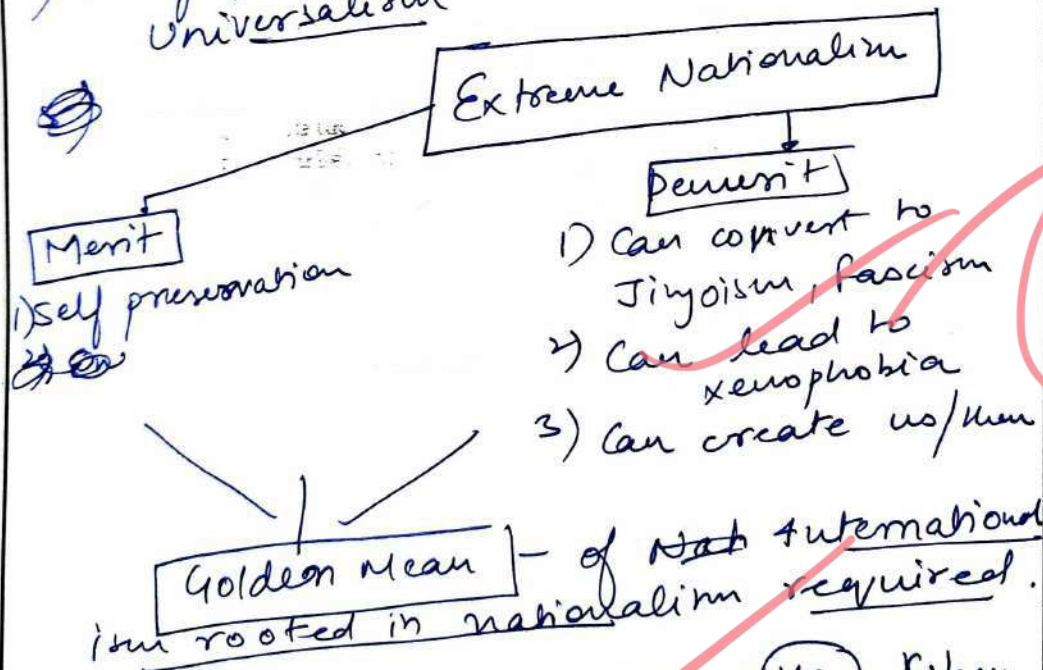 Universalism
Extreme Nationalism
Merit
1) Self preservation
Demerit
1) Can convert to
Jingoism, fascism
2) Can lead to
xenophobia
3) Can create us/them
Golden Mean - of International
ism rooted in nationalism required.